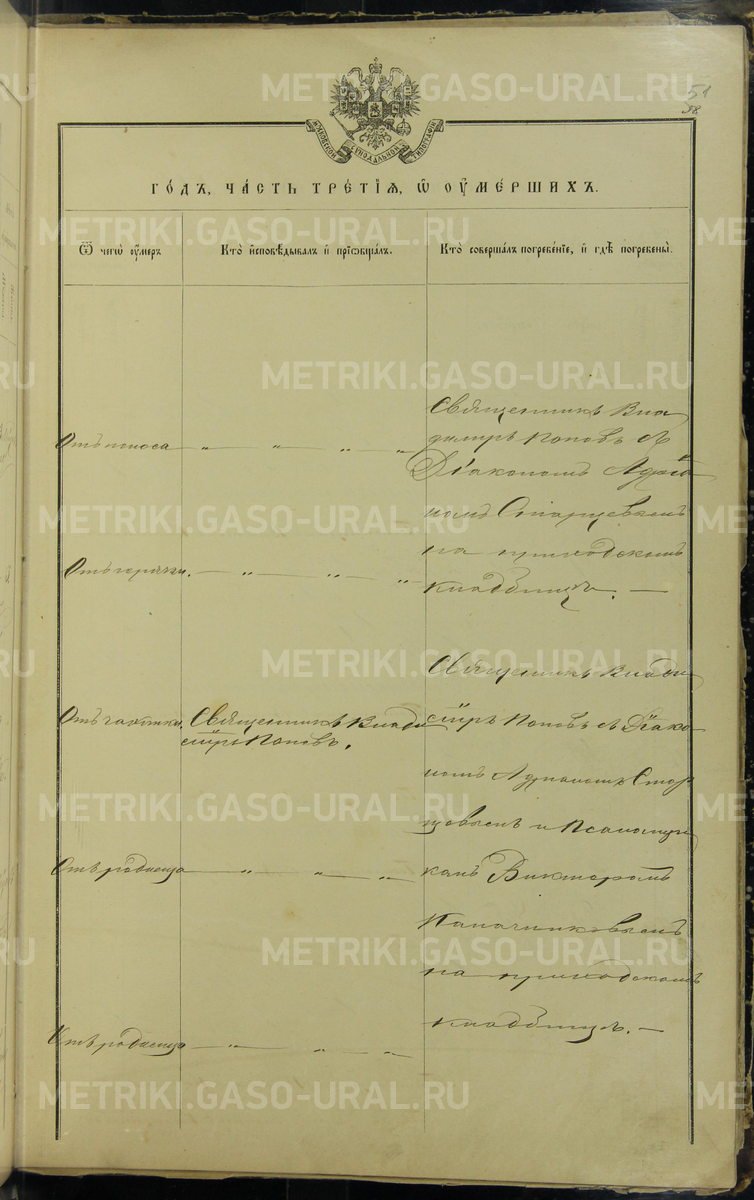 METRIKI.GASO-URAL.RU
58
МОСКОВСКОЙ СѴНОДАЛЬНОЙ ТИПОГРАФІИ
ГО́ДЪ, ЧА́СТЬ ТРЕ́ТІѦ, Ѡ ОУМЕ́РШИХЪ.
Ѿ чегѡ̀ оу́меръ
Кто̀ и҆сповѣ́дывалъ и҆ прїѡбща́лъ.
Кто̀ соверша́лъ погребе́нїе, и҆ гдѣ̀ погребены̀.
Отъ поноса
Священникъ Вла
димiръ Поповъ съ
Дiакономъ Адрiа
номъ Старцевымъ
на приходскомъ
кладбищѣ.
Отъ горячки.
Отъ чахотки.
Священникъ Влади
мiръ Поповъ.
Священникъ Влади
мiръ Поповъ съ Дiако
номъ Адрiаномъ Стар
цовымъ и Псаломщи
комъ Викторомъ
на приходскомъ
кладбищѣ.
Отъ родимца
Отъ родимца